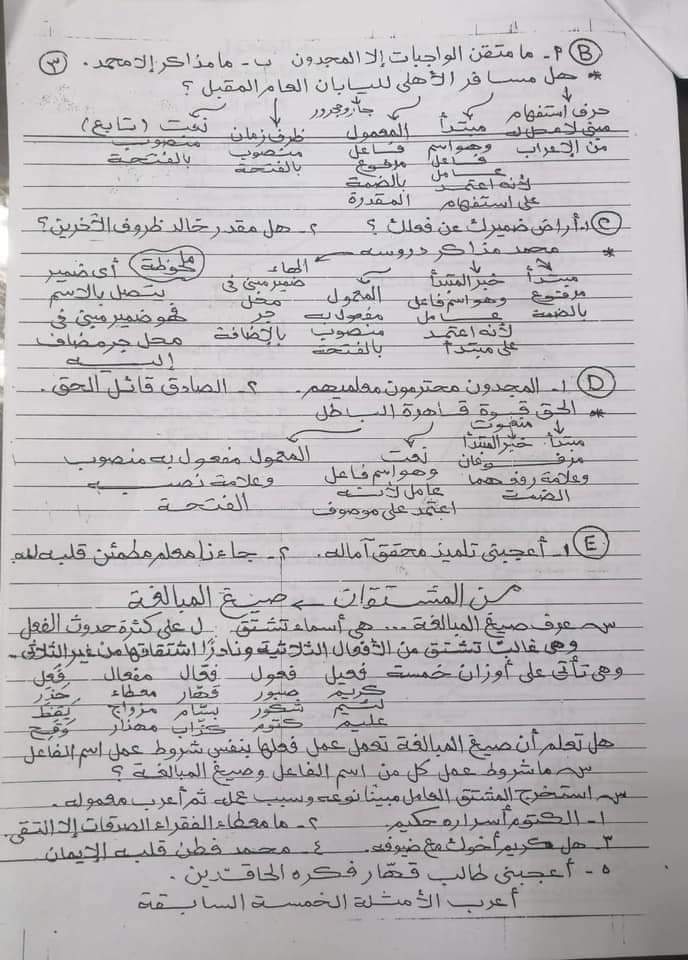 (B) ٢- ما متقن الواجبات إلا المجدون ب- ما مذاكر إلا محمد. (٣)
* هل مسافر الأهلى لليابان العام المقبل ؟
حرف استفهام مبتدأ المعمول جار ومجرور ظرف زمان نعت (تابع)
مبنى لا محل له وهو اسم فاعل منصوب منصوب
من الإعراب فاعل مرفوع بالفتحة بالفتحة
عامل بالضمة
لأنه اعتمد المقدرة
على استفهام
(C) ١- أراض ضميرك عن فعلك ؟ ٢- هل مقدر خالد ظروف الآخرين ؟
* محمد مذاكر دروسه
مبتدأ خبر المبتدأ المعمول الهاء ملحوظة أى ضمير
مرفوع وهو اسم فاعل مفعول به ضمير مبنى فى يتصل بالاسم
بالضمة عامل منصوب محل جر فهو ضمير مبنى فى
لأنه اعتمد بالفتحة بالإضافة محل جر مضاف
على مبتدأ إليه
(D) ١- المجدون محترمون معلميهم. ٢- الصادق قائل الحق.
* الحق قوة قاهرة الباطل
منعوت
مبتدأ خبر المبتدأ نعت المعمول مفعول به منصوب
مرفوعان وهو اسم فاعل وعلامة نصبه
وعلامة رفعهما عامل لأنه الفتحة
الضمة اعتمد على موصوف
(E) ١- أعجبنى تلميذ محقق آماله. ٢- جاءنا معلم مطمئن قلبه لله
من المشتقات ← صيغ المبالغة
س عرف صيغ المبالغة ... هى أسماء تشتق ل على كثرة حدوث الفعل
وهى غالبًا تشتق من الأفعال الثلاثية ونادرًا اشتقاقها من غير الثلاثى.
وهى تأتى على أوزان خمسة فعيل فعول فعّال مفعال فَعِل
كريم صبور قهّار معطاء حَذِر
شكور بسّام مزواج يَقِظ
عليم كتوم كذّاب مهذار
هل تعلم أن صيغ المبالغة تعمل عمل فعلها بنفس شروط عمل اسم الفاعل
س ما شروط عمل كل من اسم الفاعل وصيغ المبالغة ؟
س استخرج المشتق العامل مبينا نوعه وسبب عمله ثم أعرب معموله.
١- الكتوم أسراره حكيم ٢- ما معطاء الفقراء الصدقات إلا التقى.
٣- هل كريم أخوك مع ضيوفه. ٤- محمد فطن قلبه الإيمان
٥- أعجبنى طالب قهّار فكره الحاقدين.
أعرب الأمثلة الخمسة السابقة